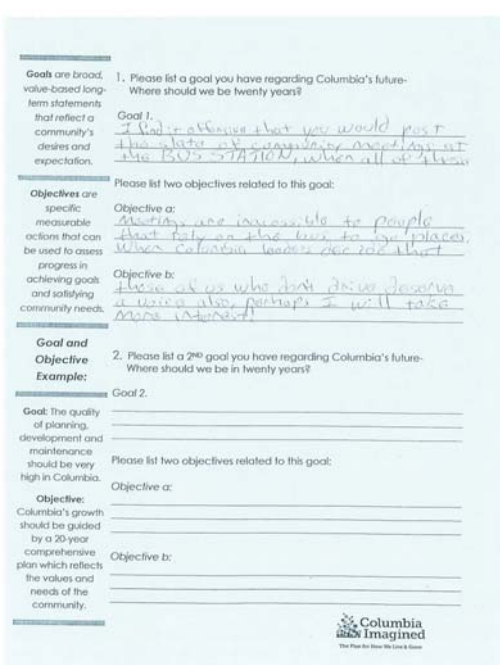 Goals are broad,
value-based long-
term statements
that reflect a
community's
desires and
expectation.
Objectives are
specific
measurable
actions that can
be used to assess
progress in
achieving goals
and satisfying
community needs.
Goal and
Objective
Example:
Goal: The quality
of planning,
development and
maintenance
should be very
high in Columbia.
Objective:
Columbia's growth
should be guided
by a 20-year
comprehensive
plan which reflects
the values and
needs of the
community.
1. Please list a goal you have regarding Columbia's future-
Where should we be twenty years?
Goal 1.
I find it offensive that you would post
the slate of community meetings at
the BUS STATION, when all of these
Please list two objectives related to this goal:
Objective a:
Meetings are inaccessible to people
that rely on the bus to go places.
When Columbia leaders decide that
Objective b:
those of us who don't drive deserve
a voice also, perhaps I will take
more interest!
2. Please list a 2ND goal you have regarding Columbia's future-
Where should we be in twenty years?
Goal 2.
Please list two objectives related to this goal:
Objective a:
Objective b:
Columbia
Imagined
The Plan for How We Live & Grow